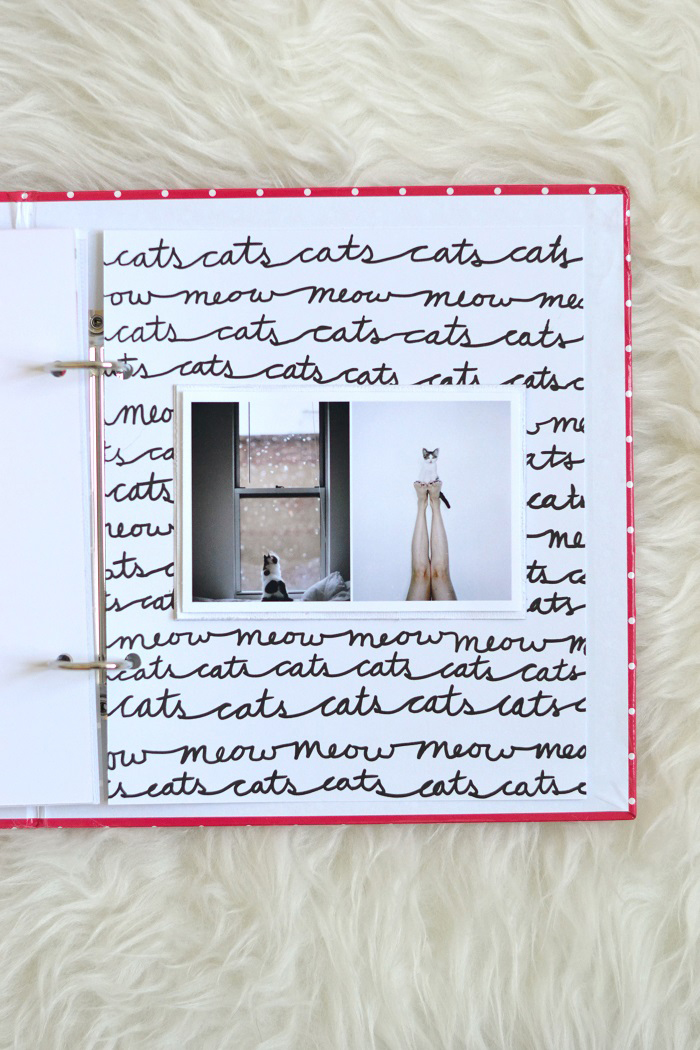 cats cats cats cats cats
ow meow meow meow me
cats cats cats cats cats
ats cats cats cats cats cats
meo me
ts ca ats
cats cat
meow me
ats c ts c
ts cat ats
meow meow meow meow m
cats cats cats cats cats
cats cats cats cats cats
ow meow meow meow meo
s cats cats cats cats cats